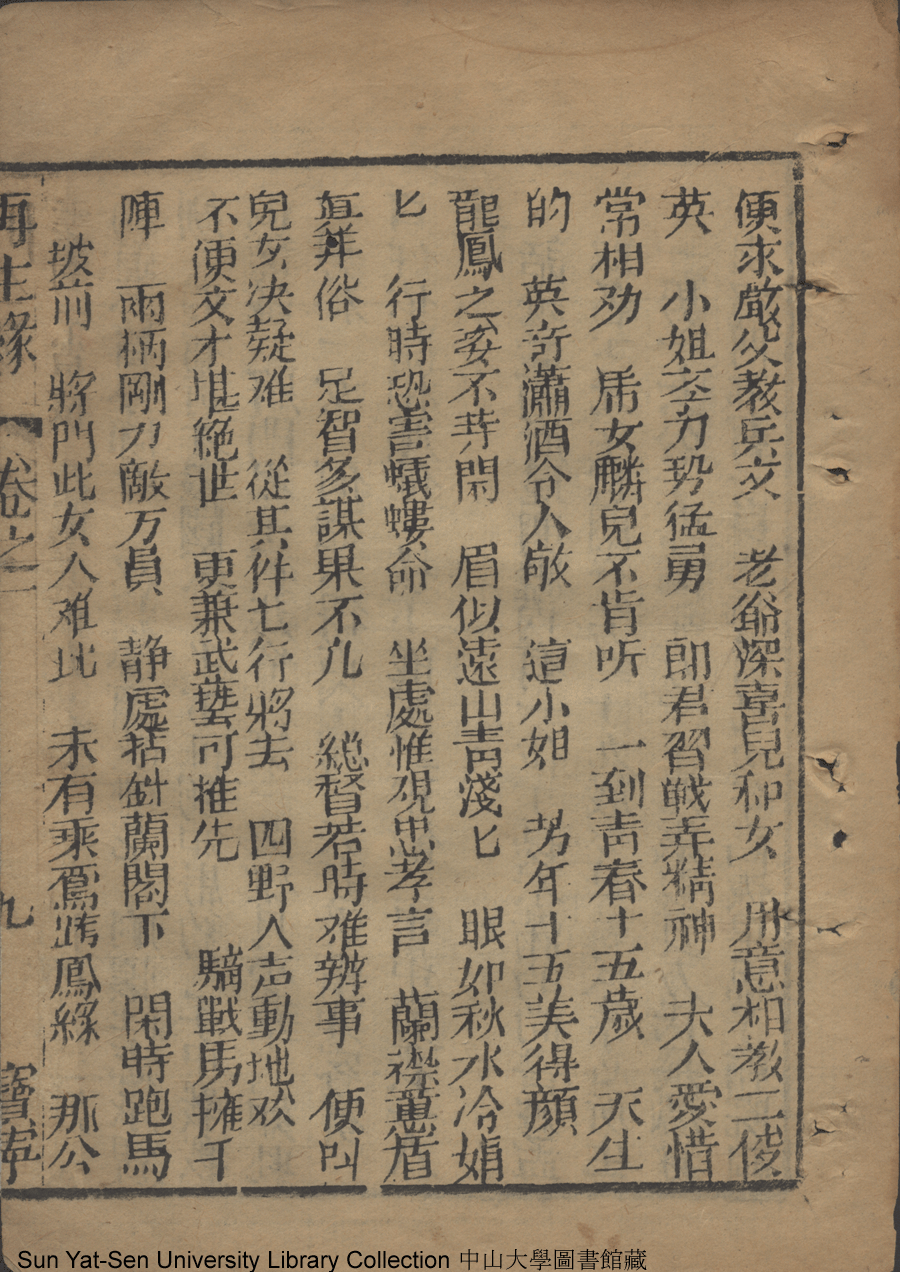 便求嚴父教兵文　老爺深喜兒和女　用意相教二俊
英　小姐本力勢猛勇　郎君習戰弄精神　夫人愛惜
常相劝　席女麟兒不肯听　一到青春十五歲　天生
的　英奇瀟洒令人敬　這小姐　芳年十五美得顏
龍鳳之姿不等閑　眉似遠山青淺匕　眼如秋水冷娟
匕　行時恐害蟻螻命　坐處惟視忠孝言　蘭襟蕙盾
真拜俗　足智多謀果不凡　總督若時难辦事　便叫
兒女决疑难　從其件七行將去　四野人声動地欢
不便文才堪絶世　更兼武藝可推先　騎戰馬擁千
陣　兩柄剛刀敵万員　静處拈針蘭閣下　閑時跑馬
披前　將門此女人难比　未有乘鸞跨鳳緣　那公
再生緣　卷之一　九　寶寧
Sun Yat-Sen University Library Collection 中山大學圖書館藏